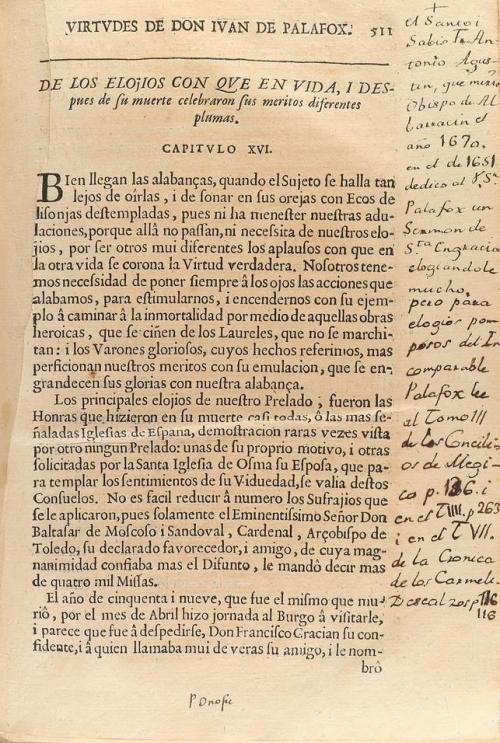 VIRTVDES DE DON IVAN DE PALAFOX. 511
DE LOS ELOJIOS CON QVE EN VIDA, I DES-
pues de su muerte celebraron sus meritos diferentes
plumas.
CAPITVLO XVI.
BIen llegan las alabanças, quando el Sujeto se halla tan
lejos de oirlas, i de sonar en sus orejas con Ecos de
lisonjas destempladas, pues ni ha menester nuestras adu-
laciones, porque allâ no passan, ni necessita de nuestros elo-
jios, por ser otros mui diferentes los aplausos con que en
la otra vida se corona la Virtud verdadera. Nosotros tene-
mos necessidad de poner siempre â los ojos las acciones que
alabamos, para estimularnos, i encendernos con su ejem-
plo â caminar â la inmortalidad por medio de aquellas obras
heroicas, que se ciñen de los Laureles, que no se marchi-
tan: i los Varones gloriosos, cuyos hechos referimos, mas
perficionan nuestros meritos con su emulacion, que se en-
grandecen sus glorias con nuestra alabança.
Los principales elojios de nuestro Prelado, fueron las
Honras que hizieron en su muerte casi todas, ô las mas se-
ñaladas Iglesias de España, demostracion raras vezes vista
por otro ningun Prelado: unas de su proprio motivo, i otras
solicitadas por la Santa Iglesia de Osma su Esposa, que pa-
ra templar los sentimientos de su Viudedad, se valia destos
Consuelos. No es facil reducir â numero los Sufrajios que
se le aplicaron, pues solamente el Eminentissimo Señor Don
Baltasar de Moscoso i Sandoval, Cardenal, Arçobispo de
Toledo, su declarado favorecedor, i amigo, de cuya mag-
nanimidad confiaba mas el Difunto, le mandô decir mas
de quatro mil Missas.
El año de cinquenta i nueve, que fue el mismo que mu-
riô, por el mes de Abril hizo jornada al Burgo â visitarle,
i parece que fue â despedirse, Don Francisco Gracian su con-
fidente, i â quien llamaba mui de veras su amigo, i le nom-
brô
el Santo i
Sabio Fr. An-
tonio Agus-
tin, que murio
Obispo de Al
barracin el
año 1670.
en el de 1651
dedico al V. Sr.
Palafox un
Sermon de
Sta Engracia
elogiandole
mucho,
pero para
elogios pom
posos del In
comparable
Palafox lee
al Tomo III
de los Concili
os de Megi
co p. 136. i
en el T IIII. p 263
i en el T VII.
de la Cronica
de los Carmeli.
Descalzos p 116
118